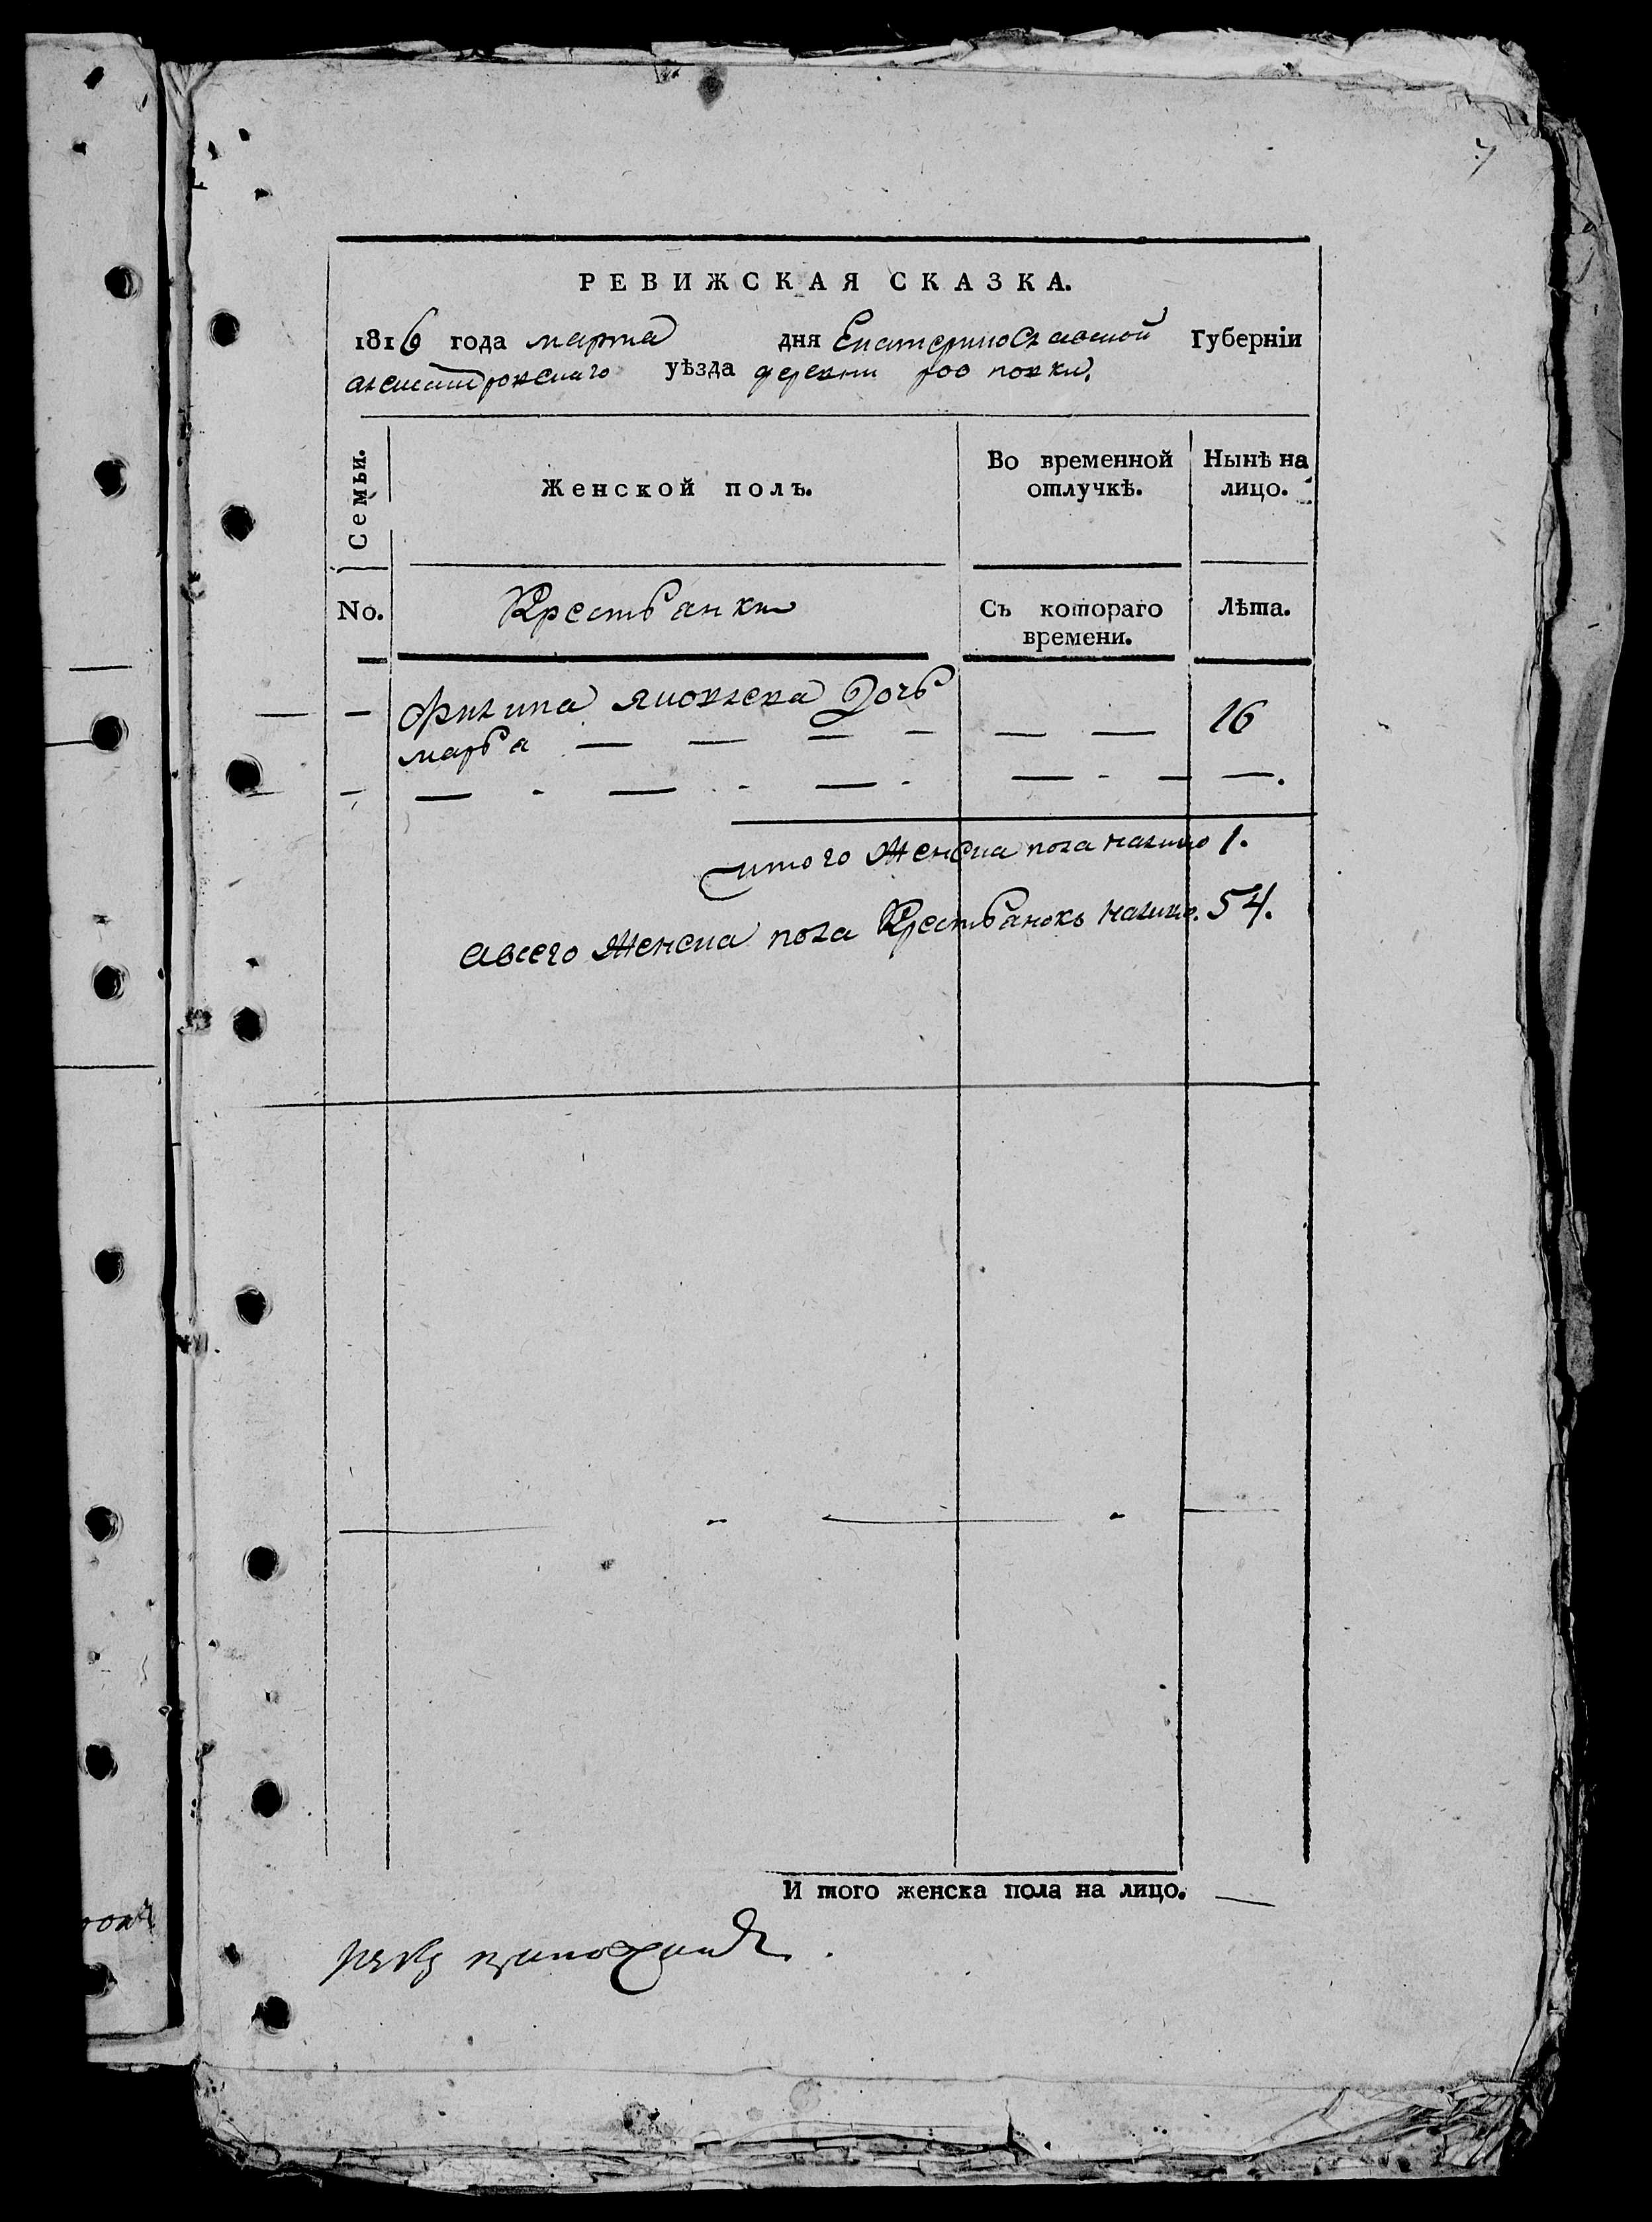 7
РЕВИЖСКАЯ СКАЗКА.
1816 года марта дня Екатеринославской Губерніи
уѣзда деревни
Семьи. Женской полъ. Во временной отлучкѣ. Нынѣ на лицо.
No. Крестьянки Съ котораго времени. Лѣта.
— Филипа яковлева Дочь
марья — — — — — — 16
— — . — . — . — . — —.
итого женска пола налицо 1.
авсего женска пола Крестьянокъ налицо. 54.
И того женска пола на лицо. —